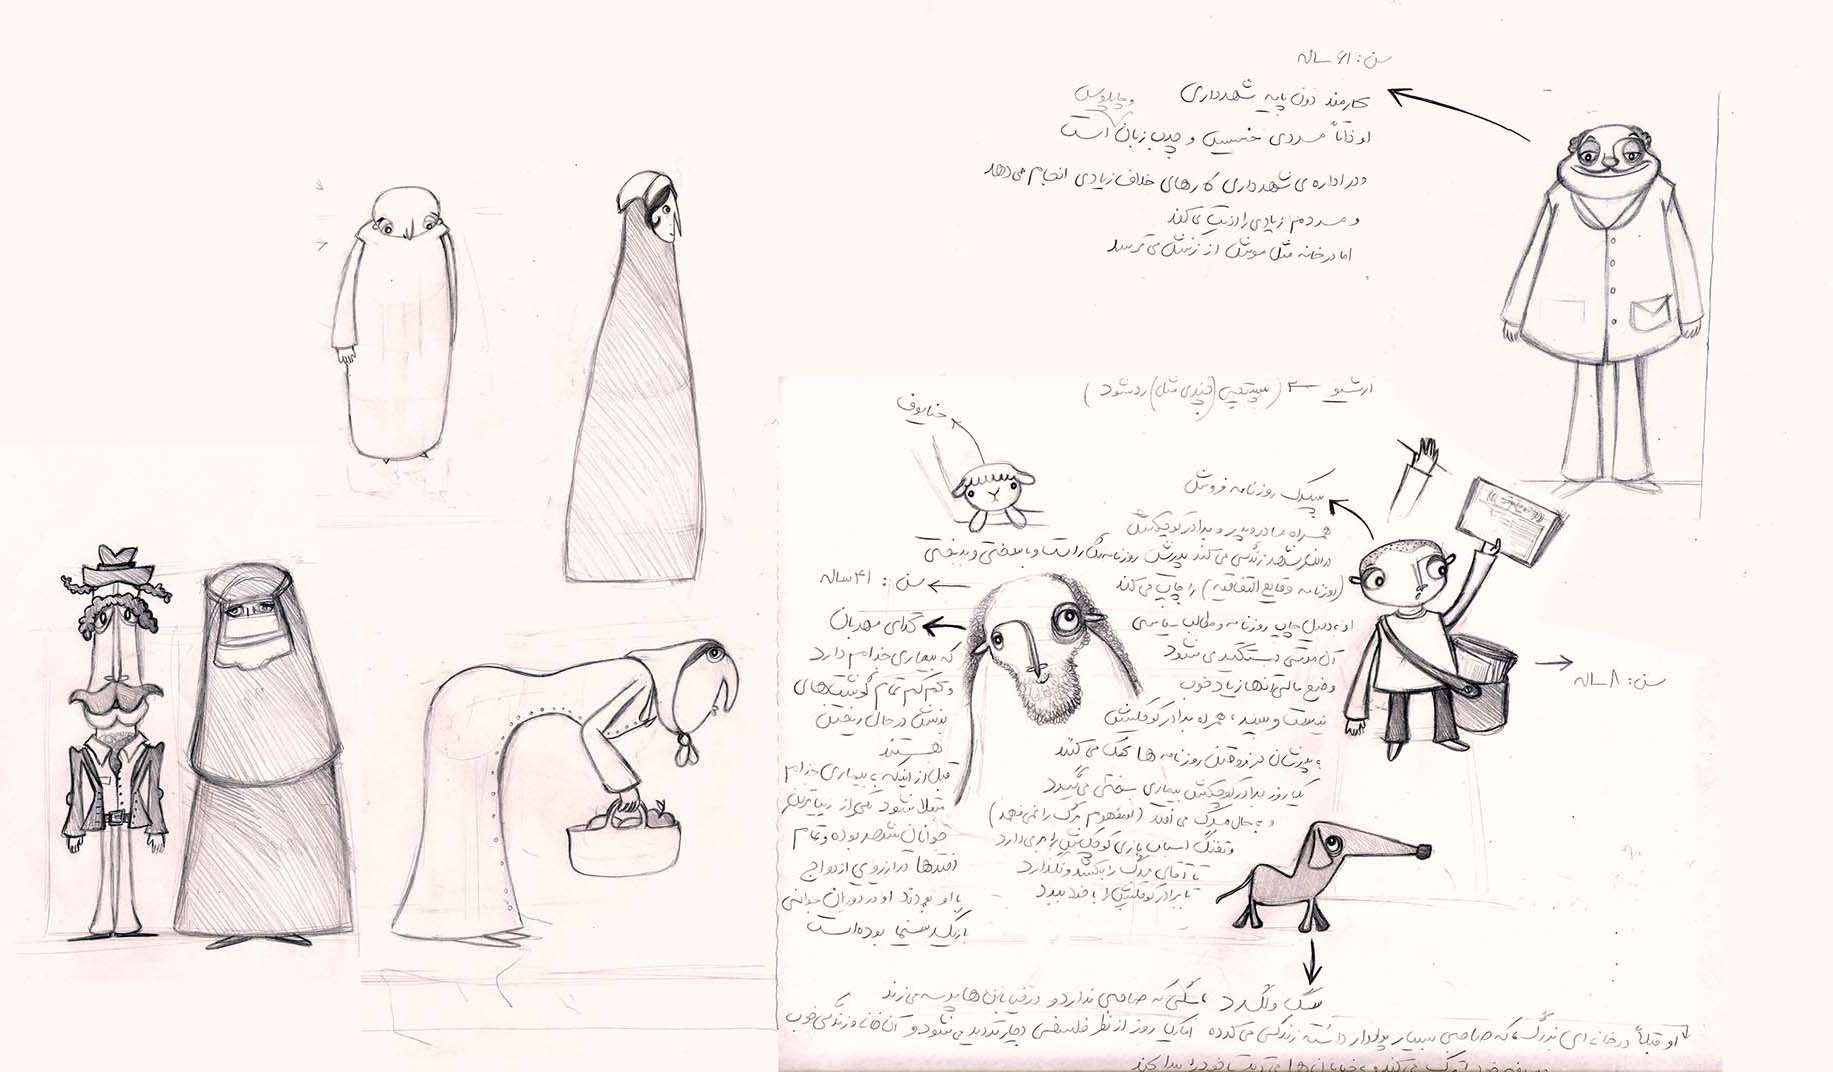 سن: ۶۱ ساله
کارمند دون پایه شهرداری
و چاپلوس
او ذاتاً مردی خسیس و چرب زبان است
و در اداره ی شهرداری کارهای خلاف زیادی انجام می دهد
و مردم زیادی را اذیت می کند
اما در خانه مثل موش از زنش می ترسد
آرشیو
رد شود)
پسرک روزنامه فروش
همراه مادر و پدر و برادر کوچکش
زندگی می کند پدرش روزنامه نگار است و با سختی و بدبختی
(روزنامه وقایع اتفاقیه) را چاپ می کند
او به دلیل چاپ روزنامه و مطالب سیاسی
آن موقتی دستگیر می شود
وضع مالی آنها زیاد خوب
نیست و پسر، همراه برادر کوچکش
به پدرشان در فروختن روزنامه ها کمک می کنند
یک روز برادر کوچکش بیماری سختی می گیرد
و به حال مرگ می افتد (او مفهوم مرگ را نمی فهمد)
و تفنگ اسباب بازی کوچکش را بر می دارد
تا آقای مرگ را بکشد و نگذارد
تا برادر کوچکش را با خود ببرد
سن: ۸ ساله
سن: ۴۱ ساله
گدای مهربان
که بیماری خذام دارد
و کم کم تمام گوشت های
بدنش در حال ریختن
هستند
قبل از اینکه به بیماری خذام
مبتلا شود یکی از زیباترین
جوانان شهر بوده و تمام
دخترها در آرزوی ازدواج
با او بودند او در دوران جوانی
بازیگر سینما بوده است
سگ ولگرد، سگی که صاحبی ندارد و در خیابان ها پرسه می زند
او قبلاً در خانه ای بزرگ، که صاحبی بسیار پولدار داشته زندگی می کرده اما یک روز از نظر فلسفی دچار تردید می شود و آن خانه و زندگی خوب